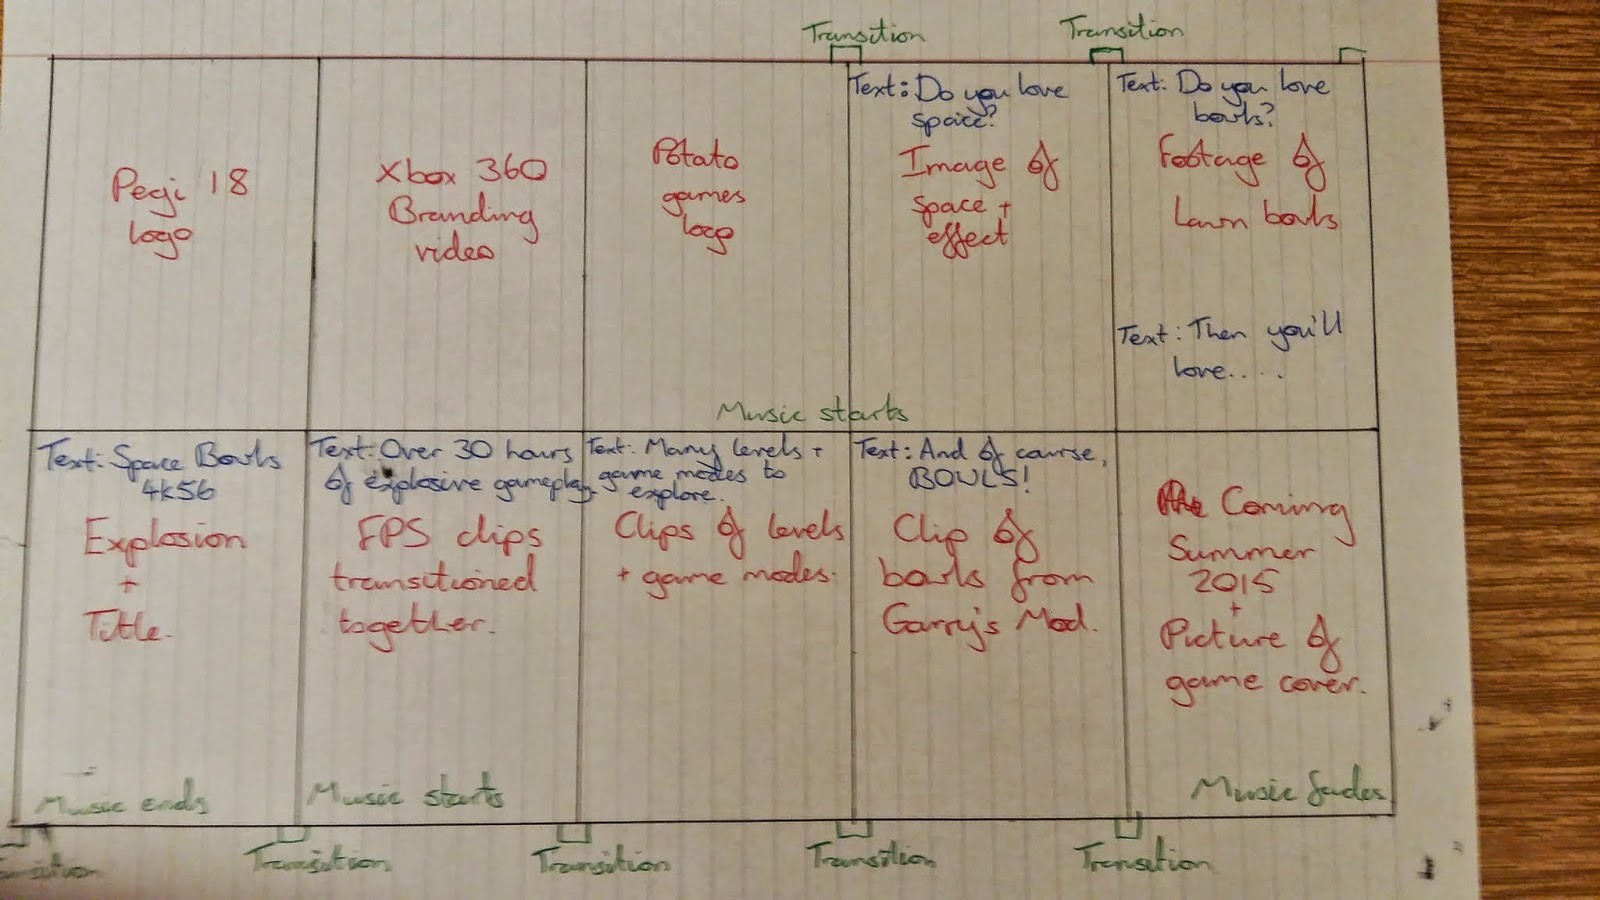 Transition
Transition
Pegi 18
logo
Xbox 360
Branding
video
Potato
games
logo
Music starts
Text: Do you love
space?
Image of
space +
effect
Text: Do you love
bowls?
Footage of
Lawn bowls
Text: Then you'll
love.....
Text: Space Bowls
4k56
Explosion
+
Title.
Music ends
Text: Over 30 hours
of explosive gameplay.
FPS clips
transitioned
together.
Music starts
Text: Many levels +
game modes to
explore.
Clips of levels
+ game modes.
Text: And of course,
BOWLS!
Clip of
bowls from
Garry's Mod.
Coming
Summer
2015
+
Picture of
game cover.
Music fades
Transition
Transition
Transition
Transition
Transition